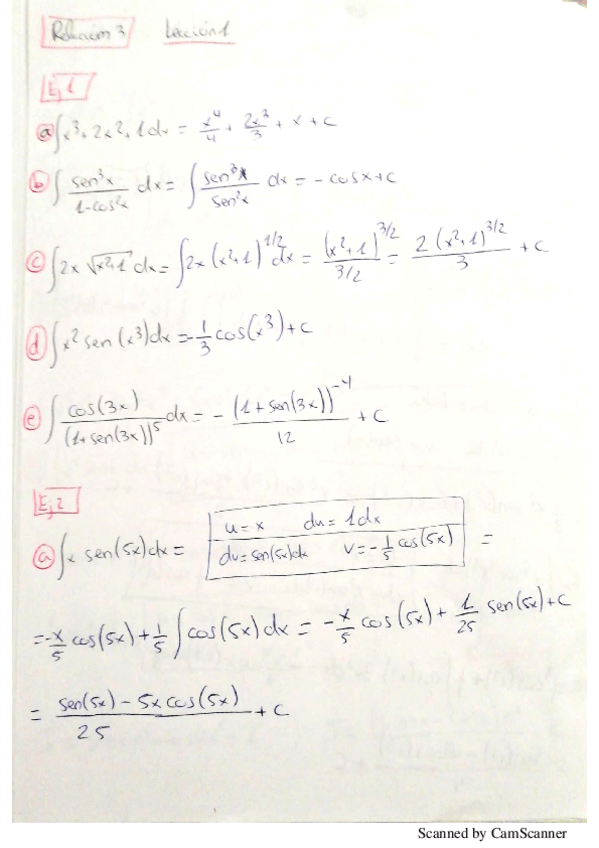 Relación 3 Lección 1
Ej 1
a ∫x³+2x²+1dx = x⁴/4 + 2x³/3 + x + C
b ∫ sen³x/(1-cos²x) dx = ∫ sen³x/sen²x dx = -cosx+C
c ∫2x √(x²+1) dx = ∫2x (x²+1)^(1/2) dx = (x²+1)^(3/2)/(3/2) = 2(x²+1)^(3/2)/3 + C
d ∫x² sen(x³)dx = -1/3 cos(x³)+C
e ∫ cos(3x)/(1+sen(3x))⁵ dx = - (1+sen(3x))^(-4)/12 + C
Ej 2
a ∫x sen(5x)dx = u=x du=1dx
dv=sen(5x)dx v=-1/5 cos(5x) =
=-x/5 cos(5x)+1/5 ∫cos(5x)dx = -x/5 cos(5x)+ 1/25 sen(5x)+C
= (sen(5x) - 5x cos(5x))/25 + C
Scanned by CamScanner